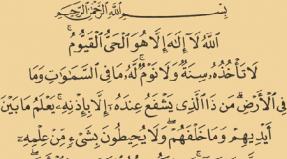 بِسْمِ اللَّهِ الرَّحْمَٰنِ الرَّحِيمِ
اللَّهُ لَا إِلَٰهَ إِلَّا هُوَ الْحَيُّ الْقَيُّومُ ۚ
لَا تَأْخُذُهُ سِنَةٌ وَلَا نَوْمٌ ۚ لَّهُ مَا فِي السَّمَٰوَٰتِ وَمَا
فِي الْأَرْضِ ۗ مَن ذَا الَّذِي يَشْفَعُ عِندَهُ إِلَّا بِإِذْنِهِ ۚ يَعْلَمُ مَا بَيْنَ
أَيْدِيهِمْ وَمَا خَلْفَهُمْ ۖ وَلَا يُحِيطُونَ بِشَيْءٍ مِّنْ عِلْمِهِ